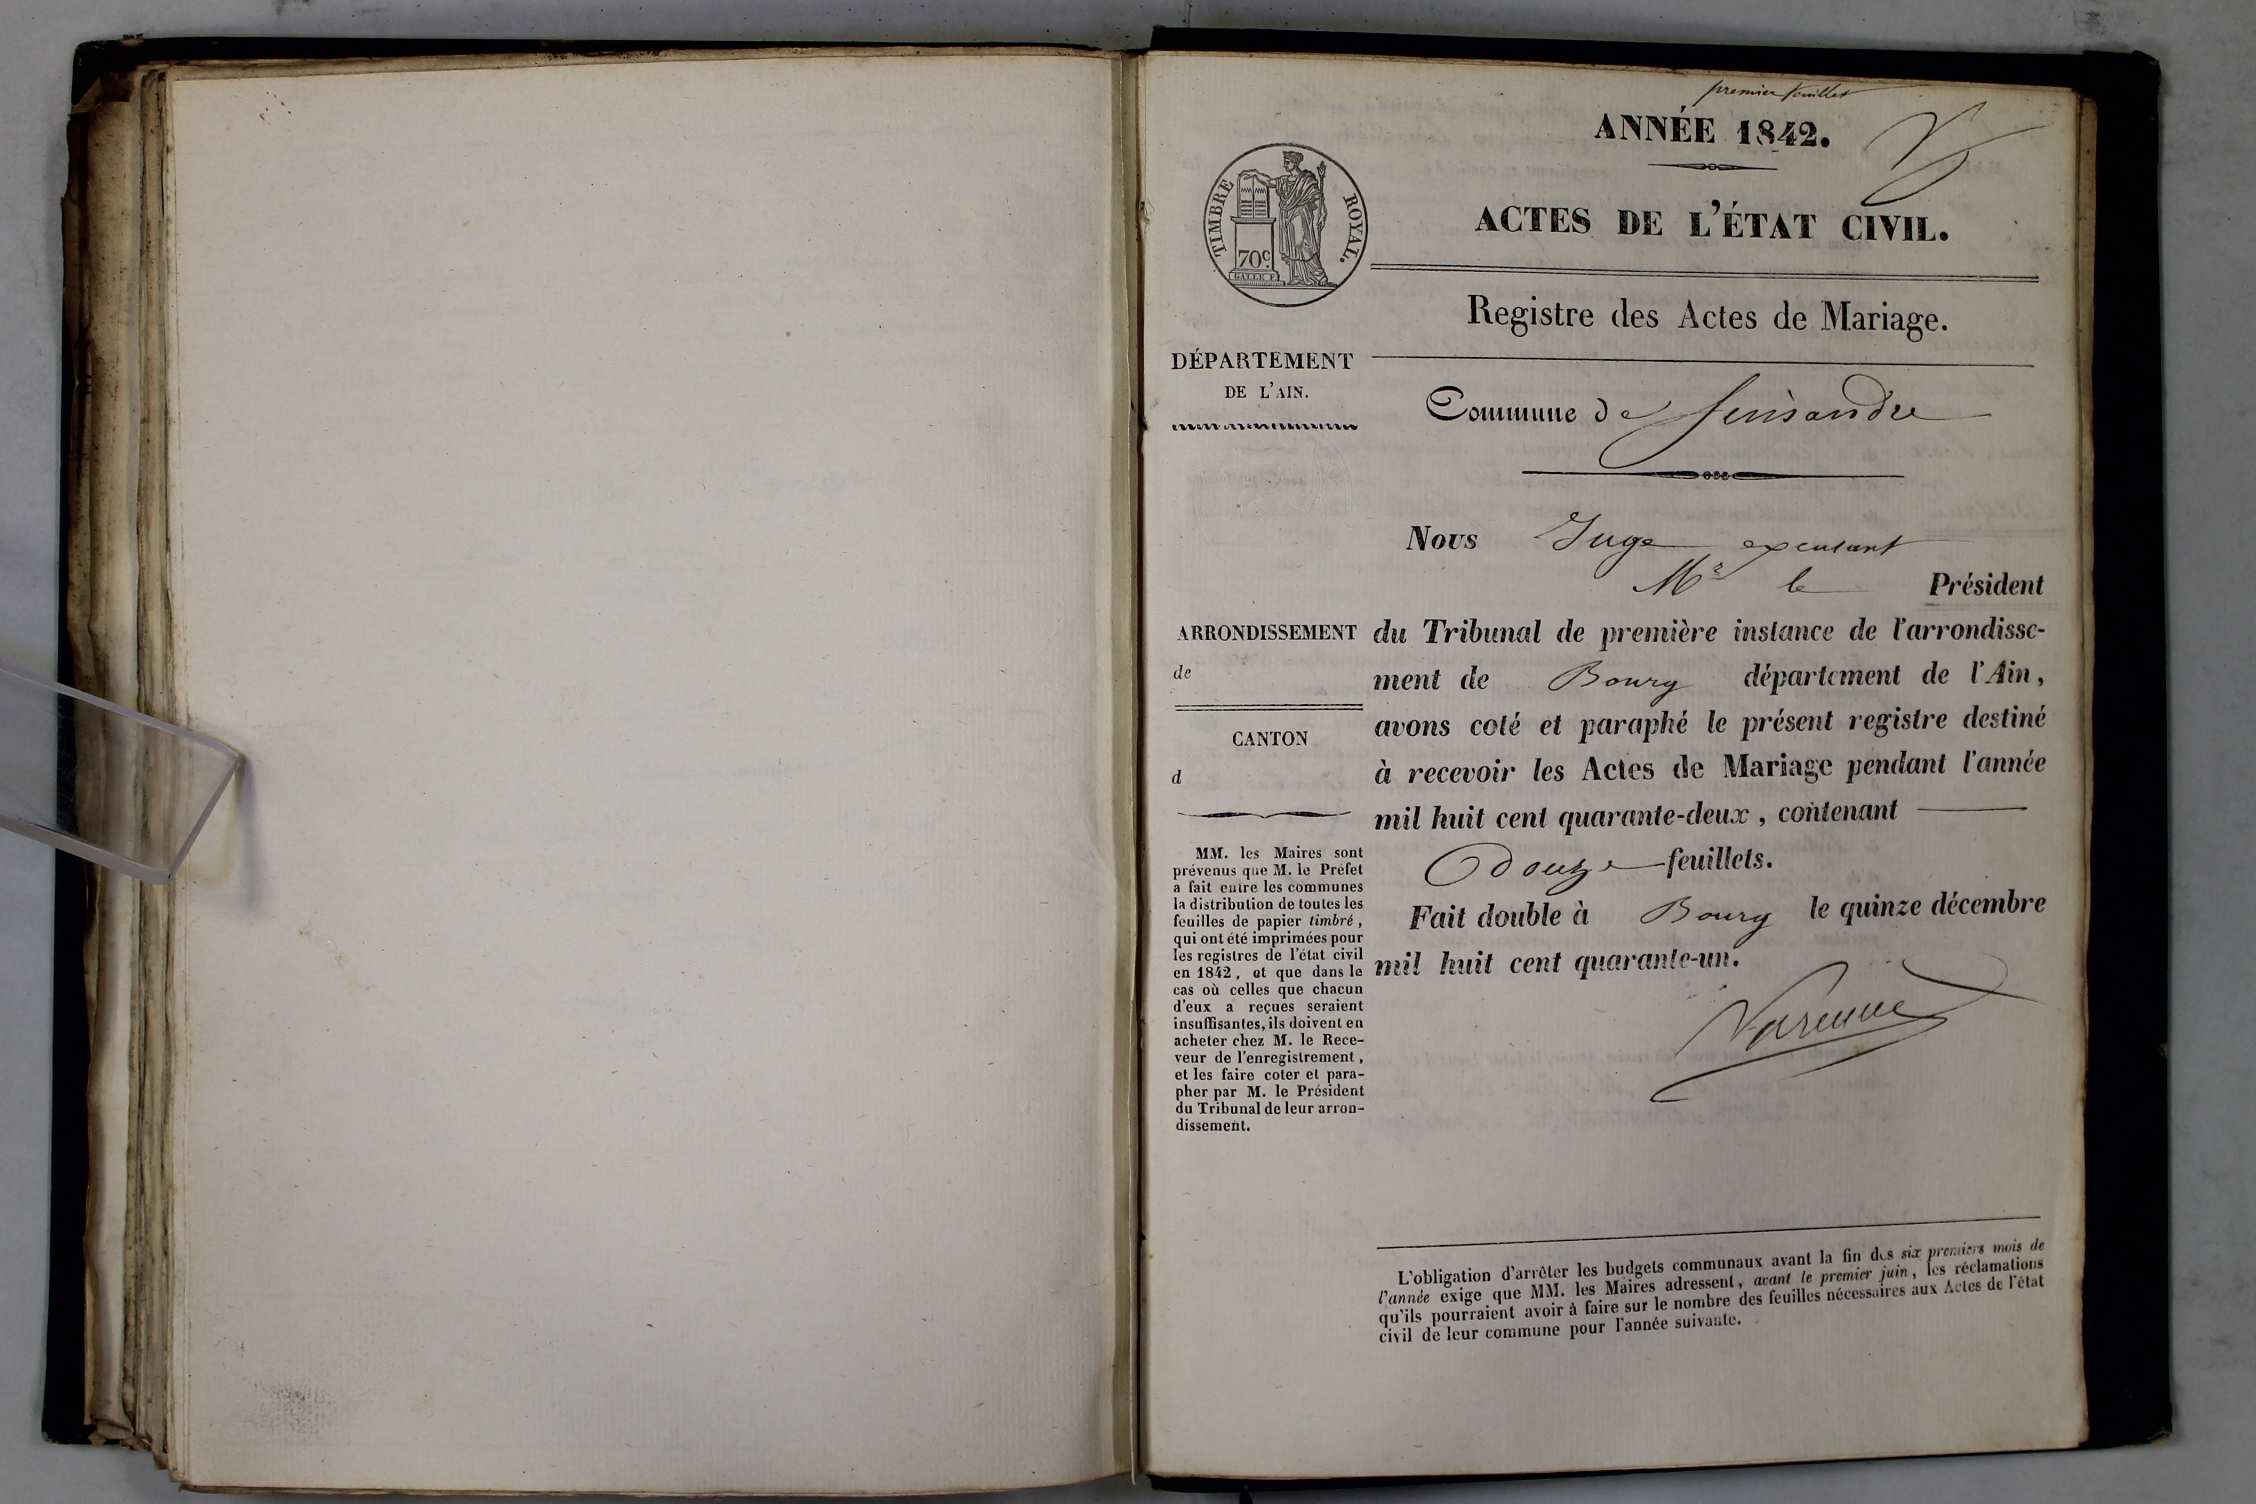 premier feuillet
ANNÉE 1842.
ACTES DE L'ÉTAT CIVIL.
TIMBRE ROYAL.
70c.
Registre des Actes de Mariage.
DÉPARTEMENT
DE L'AIN.
Commune de Jeuisandre
Nous Juge
Mr le Président
ARRONDISSEMENT
de
CANTON
d
du Tribunal de première instance de l'arrondisse-
ment de Bourg département de l'Ain,
avons coté et paraphé le présent registre destiné
à recevoir les Actes de Mariage pendant l'année
mil huit cent quarante-deux, contenant
Douze feuillets.
Fait double à Bourg le quinze décembre
mil huit cent quarante-un.
Varenne
MM. les Maires sont
prévenus que M. le Préfet
a fait entre les communes
la distribution de toutes les
feuilles de papier timbré,
qui ont été imprimées pour
les registres de l'état civil
en 1842, et que dans le
cas où celles que chacun
d'eux a reçues seraient
insuffisantes, ils doivent en
acheter chez M. le Rece-
veur de l'enregistrement,
et les faire coter et para-
pher par M. le Président
du Tribunal de leur arron-
dissement.
L'obligation d'arrêter les budgets communaux avant la fin des six premiers mois de
l'année exige que MM. les Maires adressent, avant le premier juin, les réclamations
qu'ils pourraient avoir à faire sur le nombre des feuilles nécessaires aux Actes de l'état
civil de leur commune pour l'année suivante.